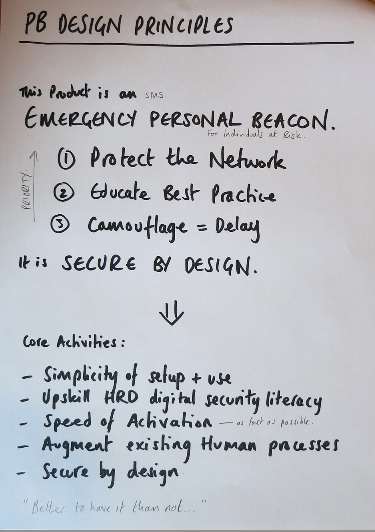 PB DESIGN PRINCIPLES
This Product is an SMS
EMERGENCY PERSONAL BEACON.
for individuals at Risk.
PRIORITY
① Protect the Network
② Educate Best Practice
③ Camouflage = Delay
It is SECURE BY DESIGN.
⇓
Core Activities:
- Simplicity of setup + use
- Upskill HRD digital security literacy
- Speed of Activation - as fast as possible.
- Augment existing Human processes
- Secure by design
"Better to have it than not..."